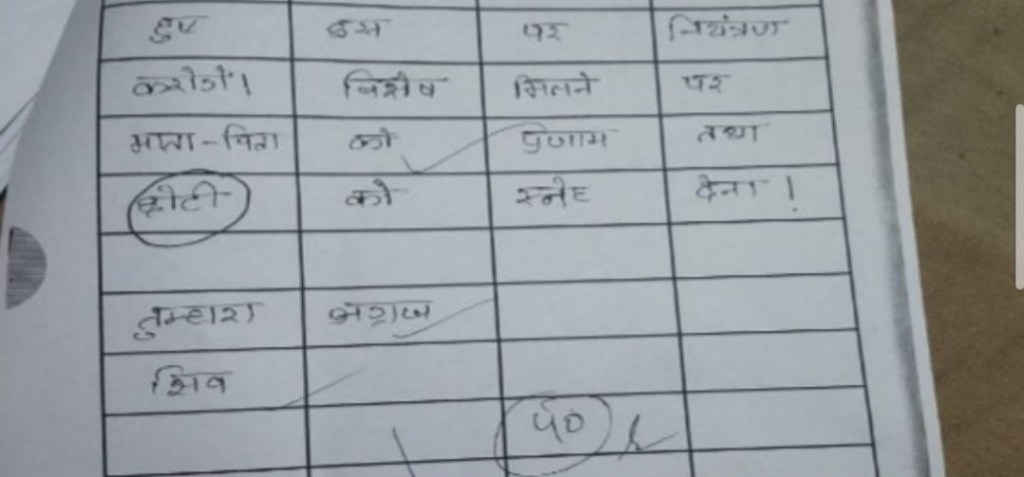 हुए इस पर नियंत्रण
करोगे। विशेष मिलने पर
माता-पिता को प्रणाम तथा
छोटी को स्नेह देना!
तुम्हारा अग्रज
शिव
५०